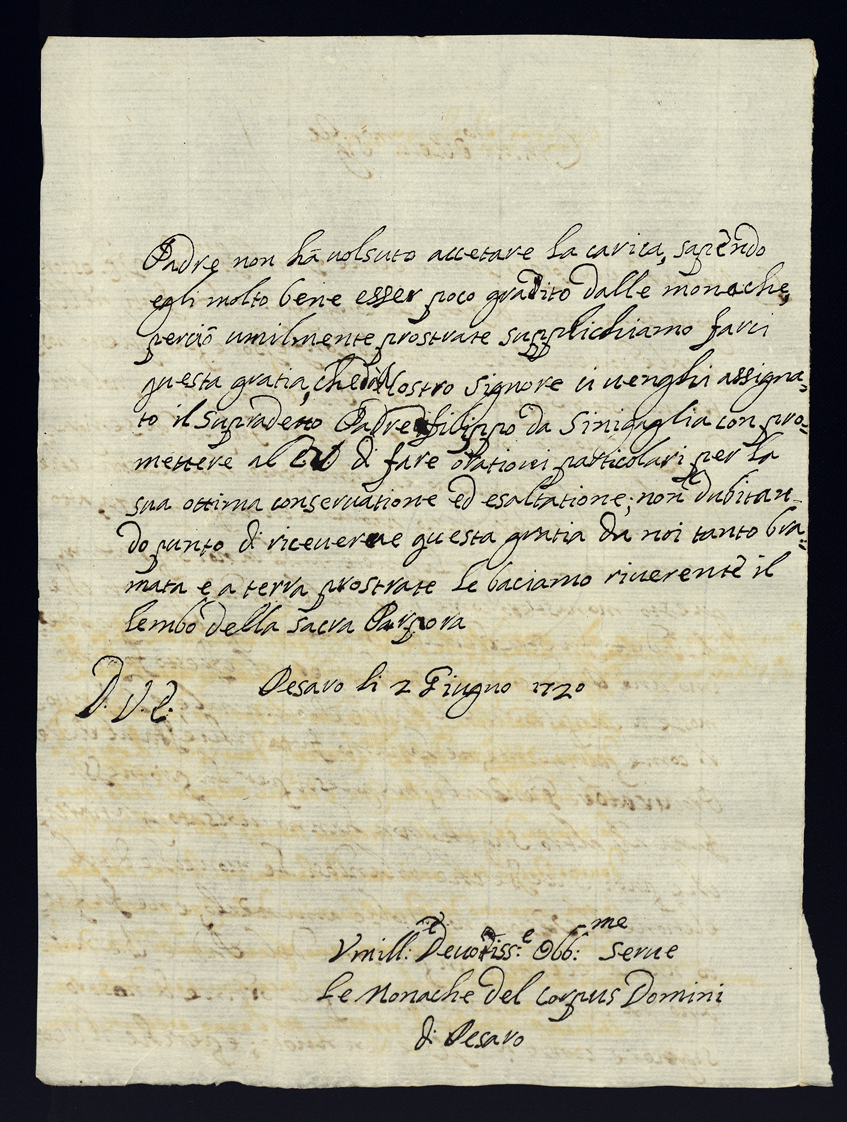 Padre non hà uolsuto accetare la carica, sapēndo
egli molto bene esser poco gradito dalle monache,
perciò umilmente prostrate supplichiamo farci
questa gratia, che da Nostro Signore ci uenghi assigna=
to il Supradetto Padre filippo da Sinigaglia con pro=
mettere al di fare orationi particolari per la
sua ottima conseruatione ed esaltatione; non dubitan=
do punto di riceuere questa gratia da noi tanto bra=
mata e a terra prostrate le baciamo riuerentē il
lembo della sacra Porpora
D. V. E. Pesaro li 2 Giugno 1720
Vmill:e Deuotiss:e Obb:me Serue
Le Monache del Corpus Domini
di Pesaro